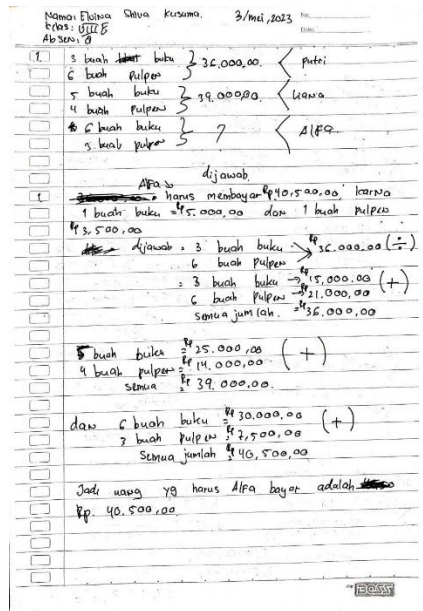 Nama: Elvina Shiva Kusuma. 3/mei, 2023 No.
Kelas: VIII E Date.
Absen: 8
1. 3 buah buku } 36.000,00. < putri
6 buah pulpen
5 buah buku } 39.000,00. <
4 buah pulpen
6 buah buku } ? < Alfa
3. buah pulpen
dijawab.
1. Alfa harus membayar Rp 40,500,00 karna
1 buah buku = Rp 5.000,00 dan 1 buah pulpen
Rp 3,500,00
dijawab = 3 buah buku Rp 36.000,00 (÷)
6 buah pulpen
= 3 buah buku → Rp 15,000.00 (+)
6 buah pulpen → Rp 21.000,00
semua jumlah. = Rp 36.000,00
5 buah buku = Rp 25.000,00 (+)
4 buah pulpen = Rp 14.000,00
semua Rp 39.000,00.
dan 6 buah buku = Rp 30.000,00 (+)
3 buah pulpen = Rp 7,500,00
Semua jumlah Rp 40,500,00
Jadi uang yg harus Alfa bayar adalah
Rp. 40.500,00
BOSS